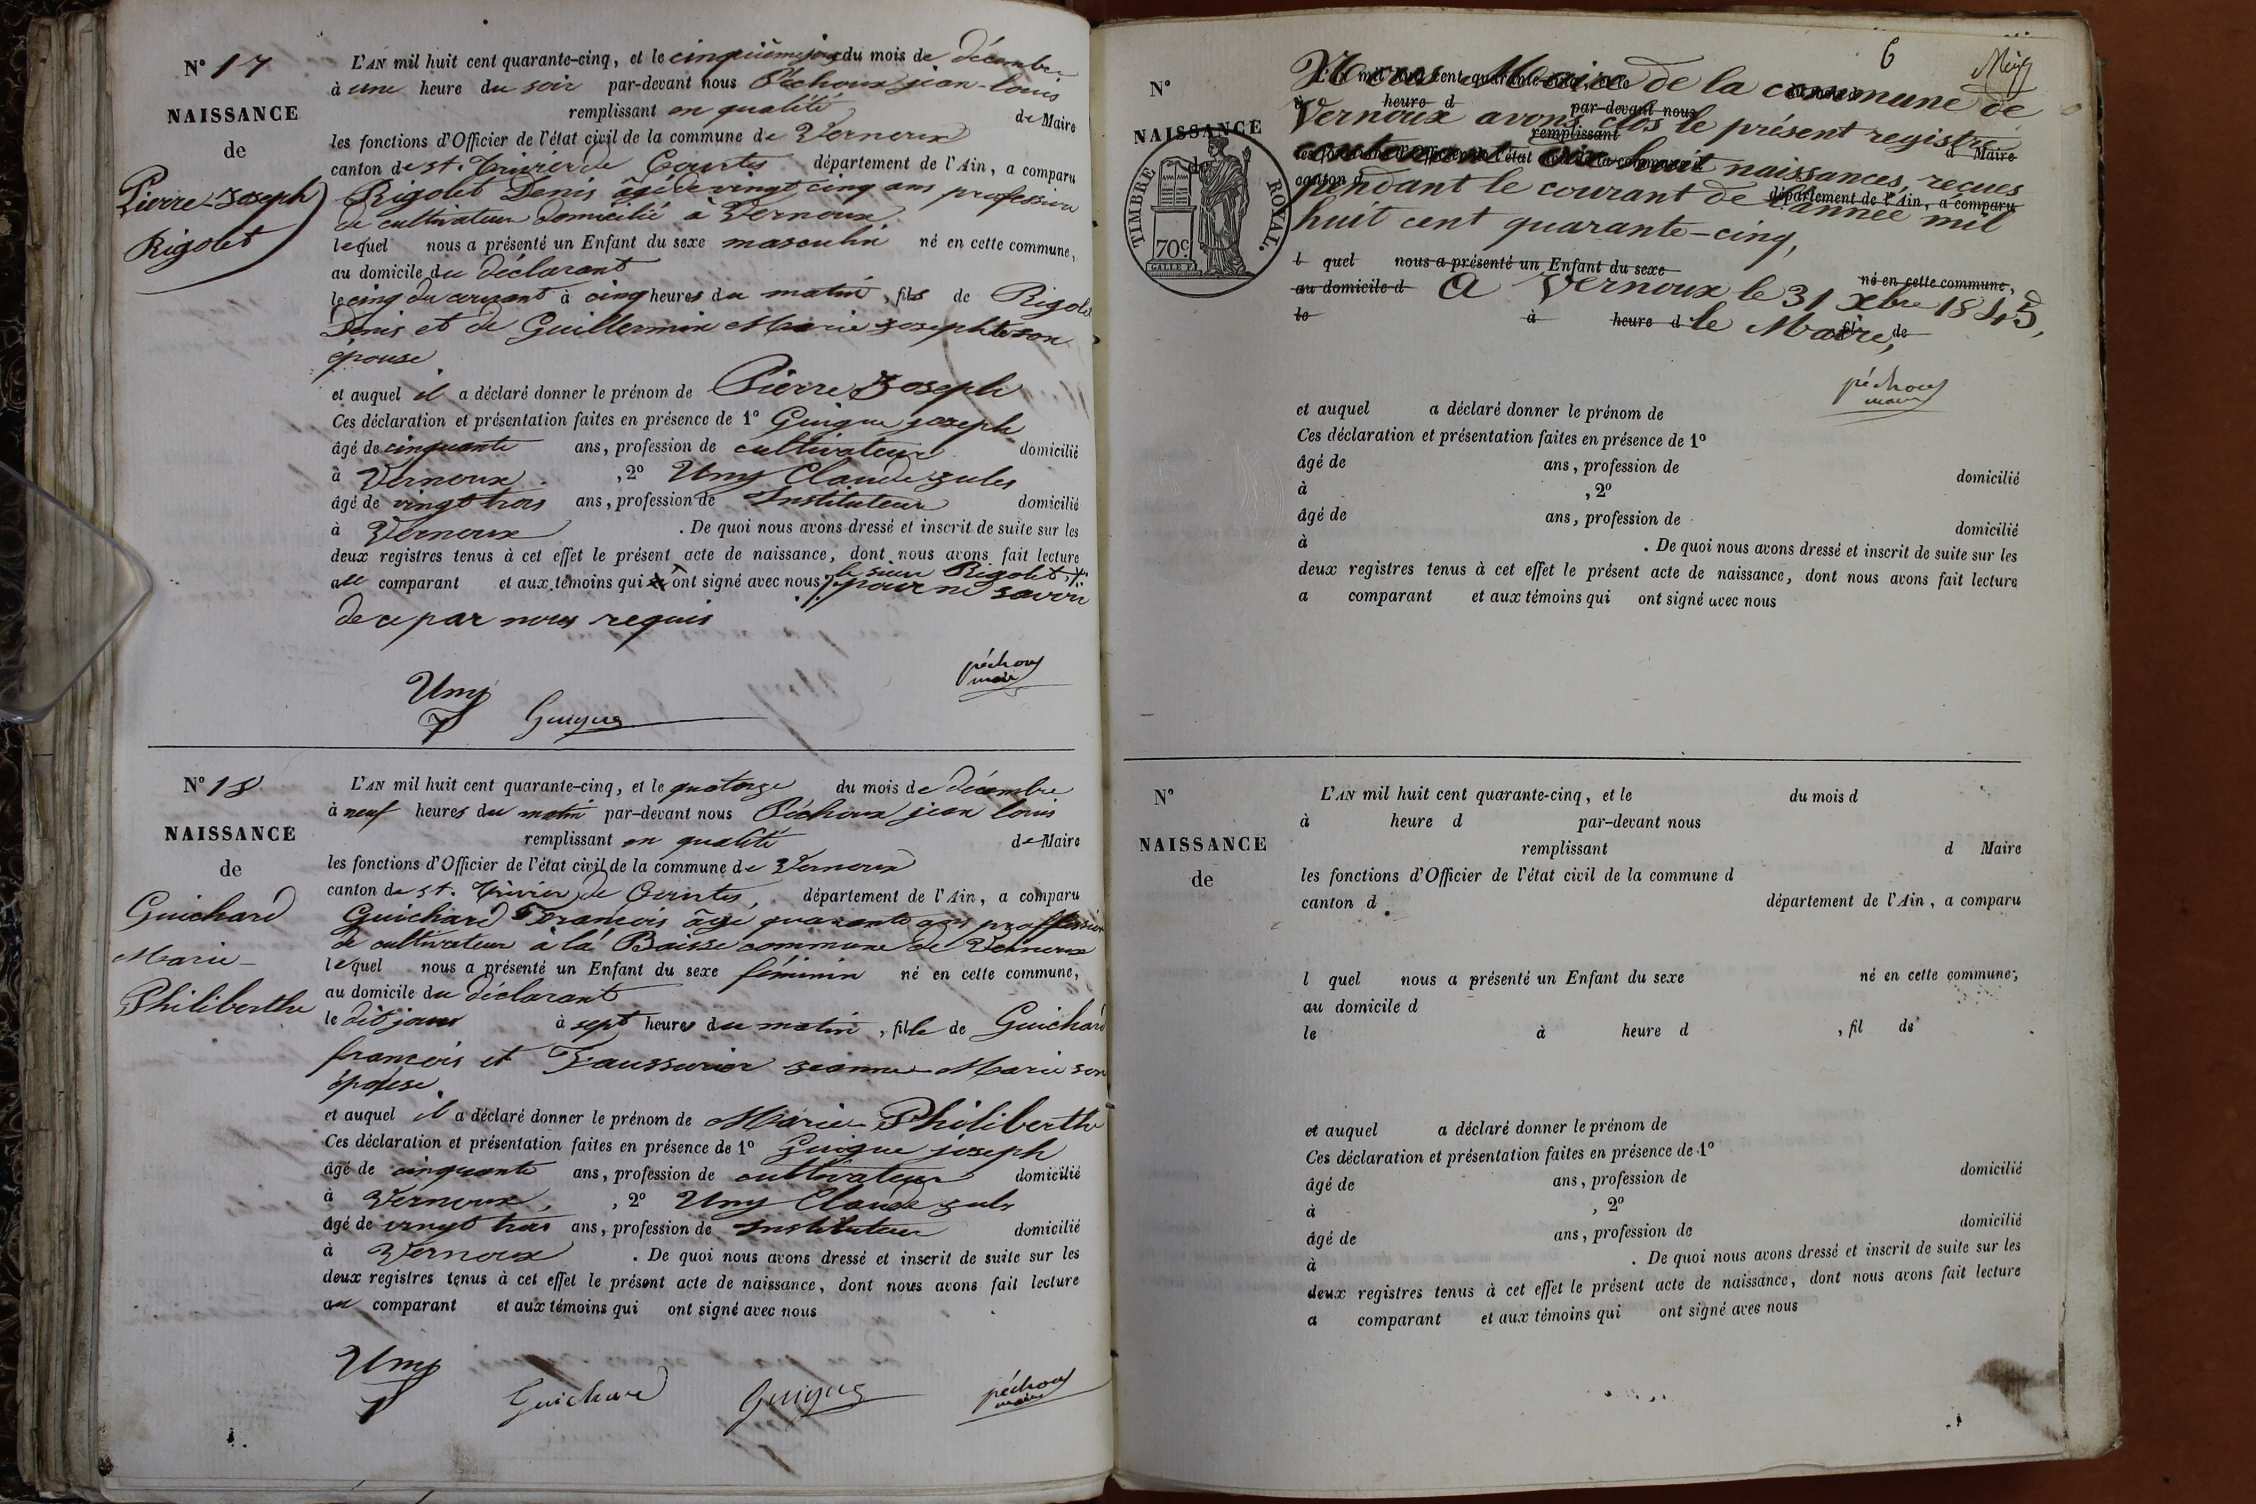 N° 17
NAISSANCE
de
Pierre-Joseph
Rigolet
L'AN mil huit cent quarante-cinq, et le cinquième jour du mois de décembre
à une heure du soir par-devant nous Péchoux jean-louis
remplissant en qualité de Maire
les fonctions d'Officier de l'état civil de la commune de Vernoux
canton de st. Trivier de Courtes département de l'Ain, a comparu
Rigolet Denis âgé de vingt cinq ans profession
de cultivateur domicilié à Vernoux
lequel nous a présenté un Enfant du sexe masculin né en cette commune,
au domicile du déclarant
le cinq du courant à cinq heures du matin, fils de Rigolet
Denis et de Guillermin Marie Josephte son
épouse
et auquel il a déclaré donner le prénom de Pierre Joseph
Ces déclaration et présentation faites en présence de 1° Guigue joseph
âgé de cinquante ans, profession de cultivateur domicilié
à Vernoux, 2° Umy Claude jules
âgé de vingt trois ans, profession de Instituteur domicilié
à Vernoux. De quoi nous avons dressé et inscrit de suite sur les
deux registres tenus à cet effet le présent acte de naissance, dont nous avons fait lecture
au comparant et aux témoins qui ont signé avec nous le sieur Rigolet
pour ne savoir
de ce par nous requis
Umy
Guigue
péchoux
maire
N° 18
NAISSANCE
de
Guichard
Marie-
Philiberthe
L'AN mil huit cent quarante-cinq, et le quatorze du mois de décembre
à neuf heures du matin par-devant nous Péchoux jean louis
remplissant en qualité de Maire
les fonctions d'Officier de l'état civil de la commune de Vernoux
canton de st. Trivier de Courtes, département de l'Ain, a comparu
Guichard François âgé quarante ans proffession
de cultivateur à la Baisse commune de Vernoux
lequel nous a présenté un Enfant du sexe féminin né en cette commune,
au domicile du déclarant
le dit jour à sept heures du matin, fille de Guichard
françois et jeanne-Marie son
épouse
et auquel il a déclaré donner le prénom de Marie-Philiberthe
Ces déclaration et présentation faites en présence de 1° Guigue joseph
âgé de cinquante ans, profession de cultivateur domicilié
à Vernoux, , 2° Umy Claude jules
âgé de vingt trois ans, profession de Instituteur domicilié
à Vernoux. De quoi nous avons dressé et inscrit de suite sur les
deux registres tenus à cet effet le présent acte de naissance, dont nous avons fait lecture
au comparant et aux témoins qui ont signé avec nous
Umy
Guichard
Guigue
péchoux
maire
6
N°
NAISSANCE
de
TIMBRE ROYAL.
70c.
Nous Maire de la commune de
Vernoux avons clos le présent registre
contenant dix huit naissances reçues
pendant le courant de l'année mil
huit cent quarante-cinq,
l quel nous a présenté un Enfant du sexe né en cette commune,
au domicile d
A Vernoux le 31 xbre 1845,
le à heure d fil de
le Maire,
péchoux
maire
et auquel a déclaré donner le prénom de
Ces déclaration et présentation faites en présence de 1°
âgé de ans, profession de domicilié
à , 2°
âgé de ans, profession de domicilié
à . De quoi nous avons dressé et inscrit de suite sur les
deux registres tenus à cet effet le présent acte de naissance, dont nous avons fait lecture
a comparant et aux témoins qui ont signé avec nous
N°
NAISSANCE
de
L'AN mil huit cent quarante-cinq, et le du mois d
à heure d par-devant nous
remplissant d Maire
les fonctions d'Officier de l'état civil de la commune d
canton d département de l'Ain, a comparu
l quel nous a présenté un Enfant du sexe né en cette commune,
au domicile d
le à heure d , fil de
et auquel a déclaré donner le prénom de
Ces déclaration et présentation faites en présence de 1°
âgé de ans, profession de domicilié
à , 2°
âgé de ans, profession de domicilié
à . De quoi nous avons dressé et inscrit de suite sur les
deux registres tenus à cet effet le présent acte de naissance, dont nous avons fait lecture
a comparant et aux témoins qui ont signé avec nous